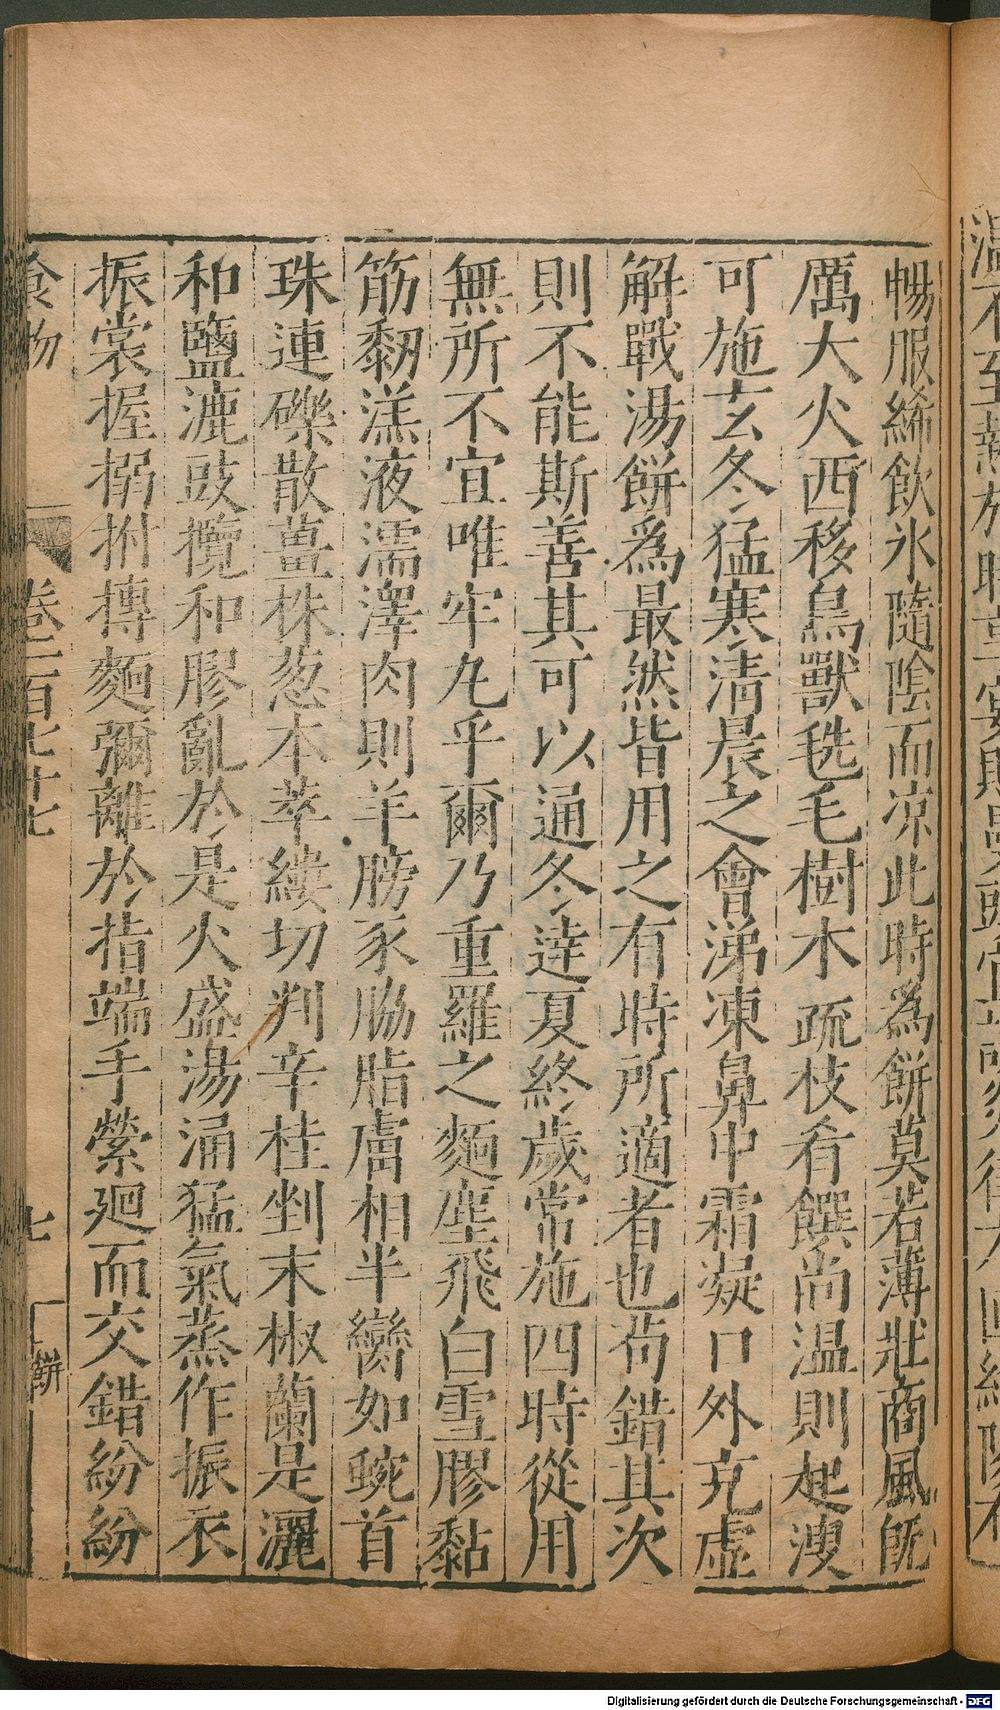 暢服絺飲氷隨陰而凉此時為餅莫若薄壯商風旣
厲大火西移鳥獸毨毛樹木疏枝肴饌尚温則起溲
可施玄冬猛寒清晨之會涕凍鼻中霜凝口外充虛
解戰湯餅為最然皆用之有時所適者也苟錯其次
則不能斯善其可以通冬逹夏終歲常施四時從用
無所不宜唯牢丸乎爾乃重羅之麵塵飛白雪膠黏
筋䵑溔液濡澤肉則羊膀豕脇脂膚相半臠如蜿首
珠連礫散薑株葱本萃縷切判辛桂剉末椒蘭是灑
和鹽漉豉攬和膠亂於是火盛湯涌猛氣蒸作振衣
振裳握搦拊搏麵彌離於指端手縈廻而交錯紛紛
食物 卷二百七十七 七 餅
Digitalisierung gefördert durch die Deutsche Forschungsgemeinschaft - DFG